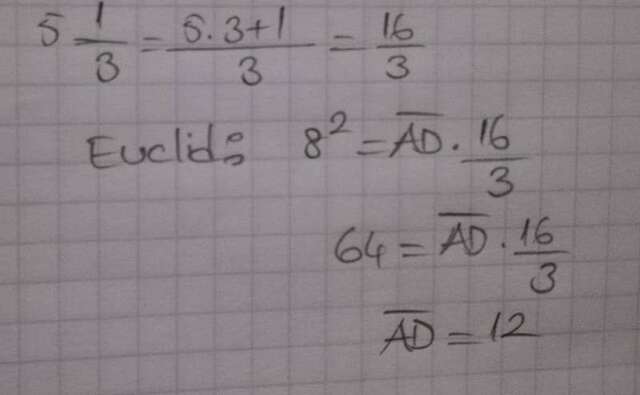 5 1/3 = 5.3+1/3 = 16/3
Euclid: 8² = A̅D̅ . 16/3
64 = A̅D̅ . 16/3
A̅D̅ = 12